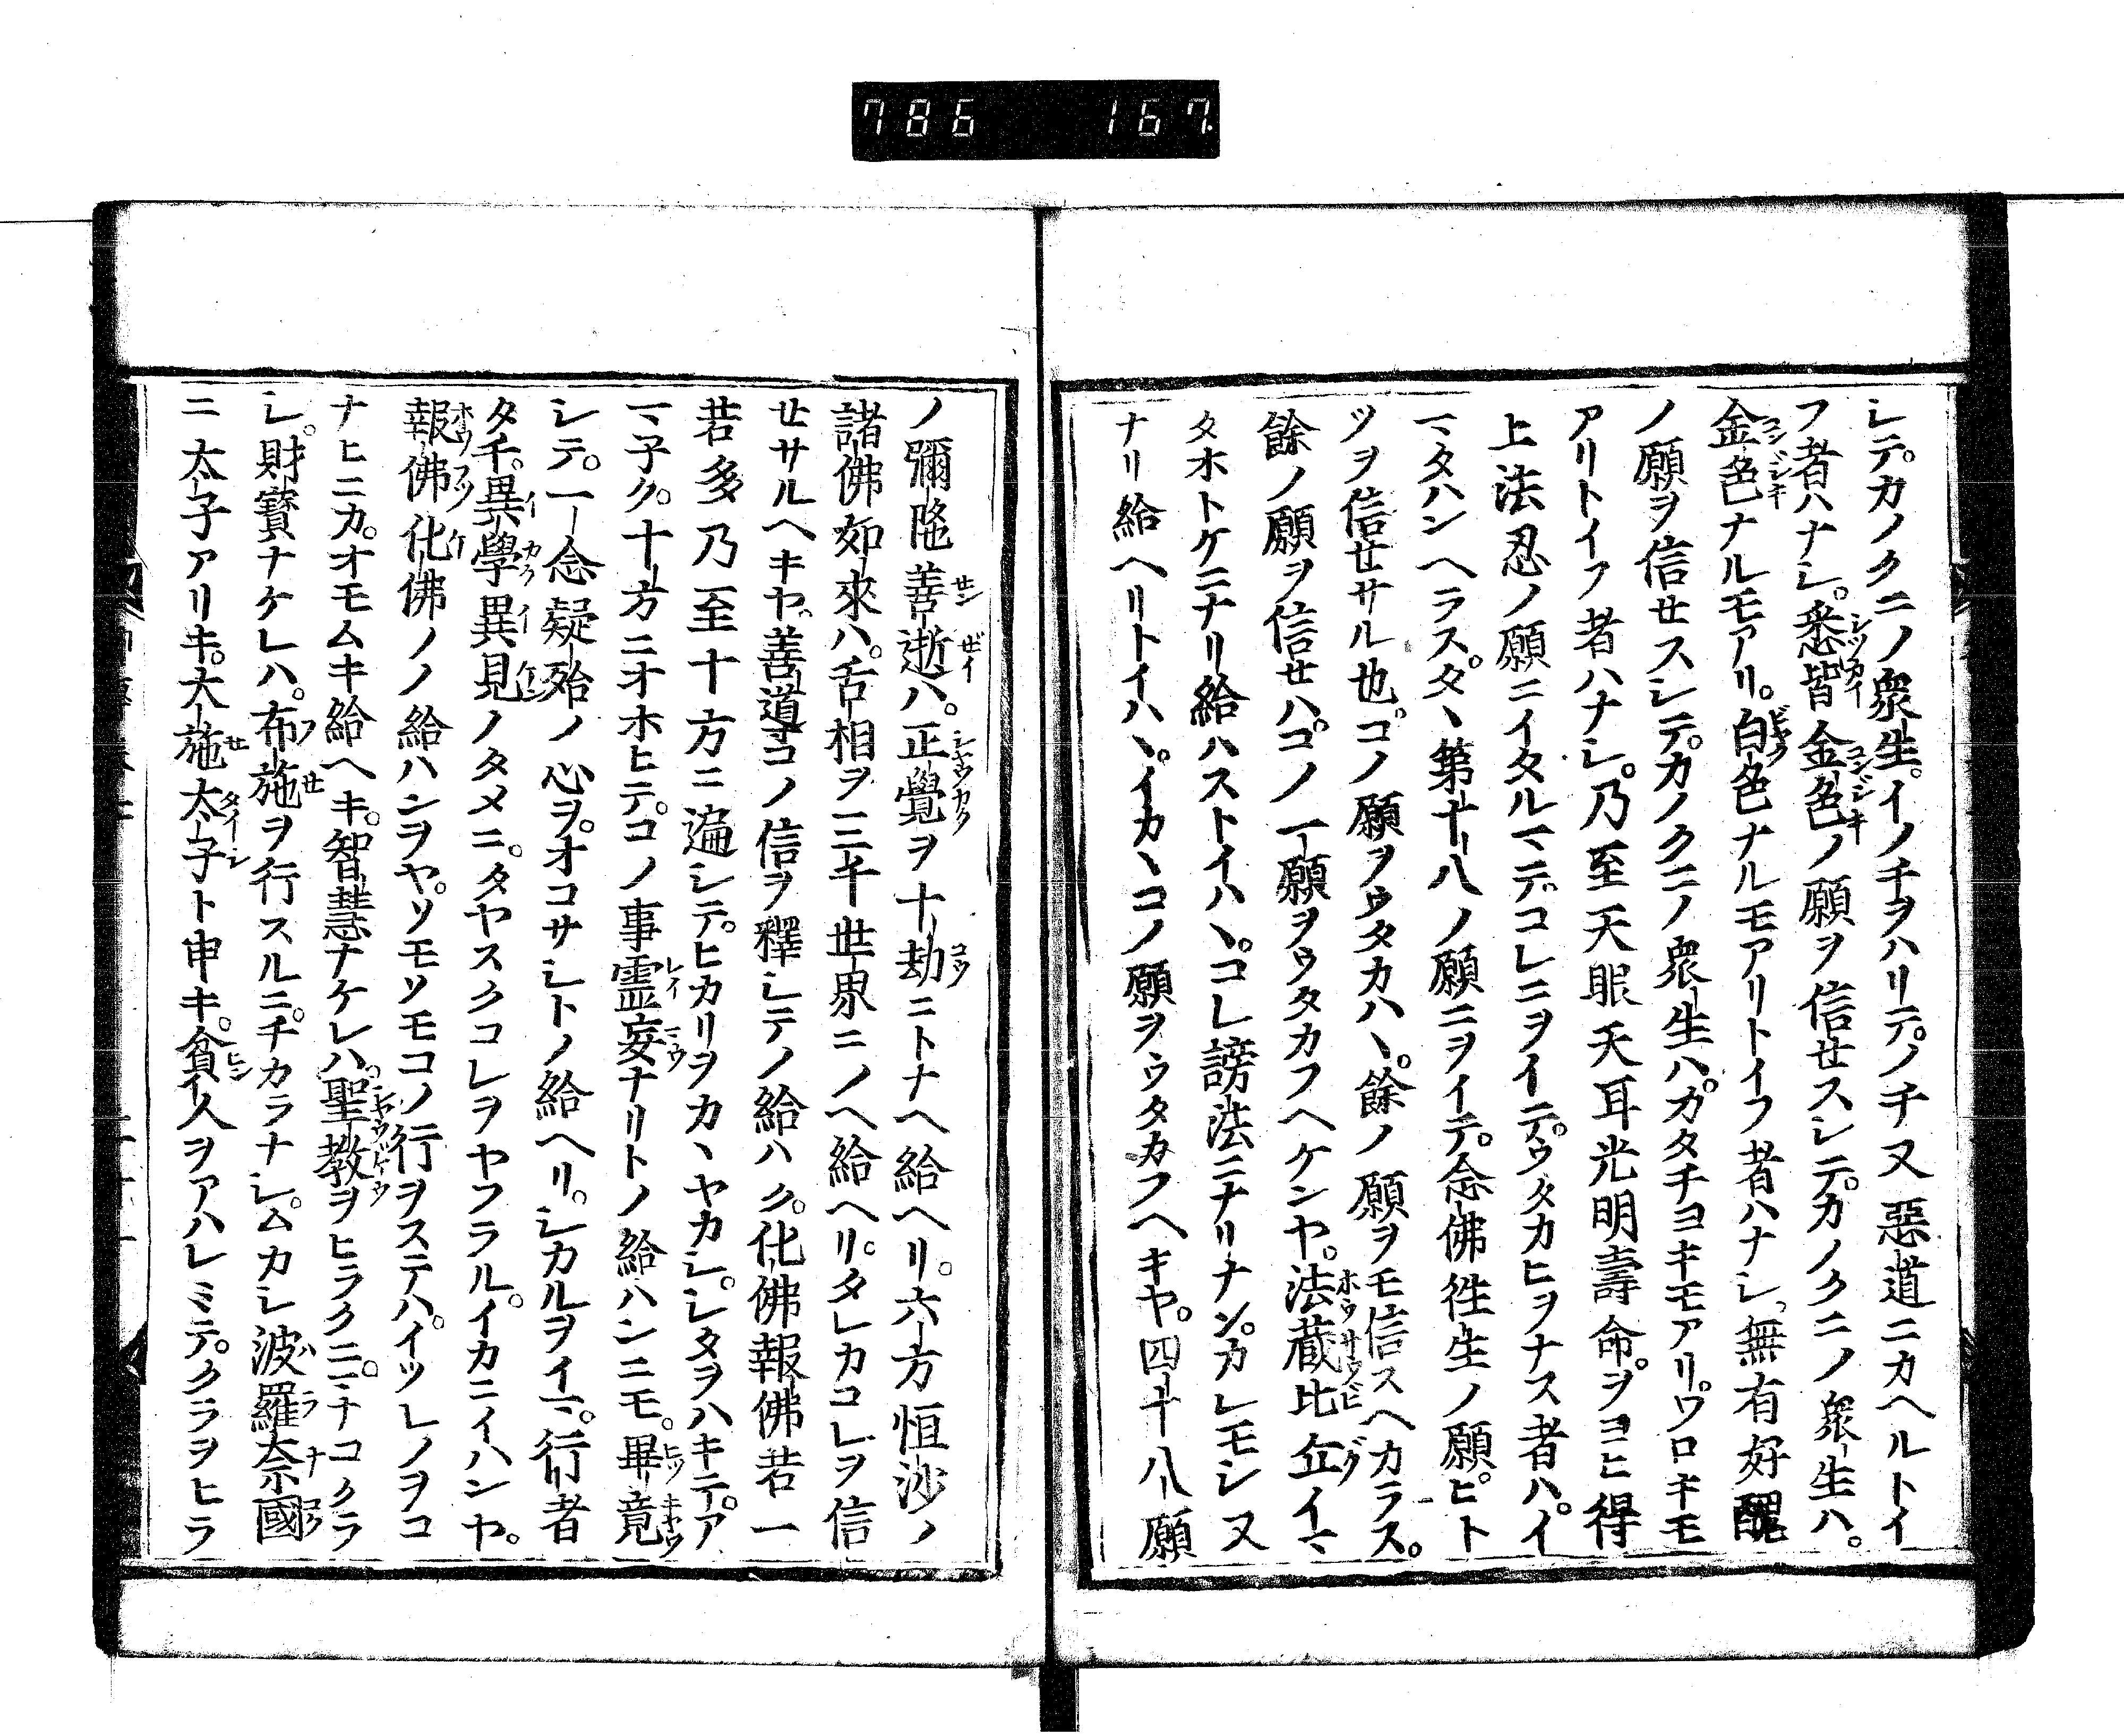 786 167
シテ。カノクニノ衆生。イノチヲハリテ。ノチ又惡道ニカヘルトイ
フ者ハナシ。悉皆金色ノ願ヲ信セスシテ。カノクニノ衆生ハ。
金色ナルモアリ。白色ナルモアリトイフ者ハナシ。無有好醜
ノ願ヲ信セスシテ。カノクニノ衆生ハ。カタチヨキモアリ。ワロキモ
アリトイフ者ハナシ。乃至天眼天耳光明壽命。ヲヨヒ得
上法忍ノ願ニイタルマテ。コレニヲイテ。ウタカヒヲナス者ハ。イ
マタハンヘラス。タヽ第十八ノ願ニヲイテ。念佛徃生ノ願。ヒト
ツヲ信セサル也。コノ願ヲウタカハヽ。餘ノ願ヲモ信スヘカラス。
餘ノ願ヲ信セハ。コノ一願ヲウタカフヘケンヤ。法蔵比丘イマ
タホトケニナリ給ハストイハヽ。コレ謗法ニナリナン。カレモシ又
ナリ給ヘリトイハヽ。イカヽコノ願ヲウタカフヘキヤ。四十八願
ノ彌陁善逝ハ。正覺ヲ十劫ニトナヘ給ヘリ。六方恒沙ノ
諸佛如來ハ。舌相ヲ三千世界ニノヘ給ヘリ。タレカコレヲ信
セサルヘキヤ。善導コノ信ヲ釋シテノ給ハク。化佛報佛若一
若多乃至十方ニ遍シテ。ヒカリヲカヽヤカシ。シタヲハキテ。ア
マネク。十方ニオホヒテ。コノ事霊妄ナリトノ給ハンニモ。畢竟
シテ。一念疑殆ノ心ヲ。オコサシトノ給ヘリ。シカルヲイマ。行者
タチ。異學異見ノタメニ。タヤスクコレヲヤフラル。イカニイハンヤ。
報佛化佛ノノ給ハンヲヤ。ソモソモコノ行ヲステハ。イツレノヲコ
ナヒニカ。オモムキ給ヘキ。智慧ナケレハ。聖教ヲヒラクニ。マナコクラ
シ。財寶ナケレハ。布施ヲ行スルニ。チカラナシ。ムカシ波羅奈國
ニ太子アリキ。大施太子ト申キ。貧人ヲアハレミテ。クラヲヒラ